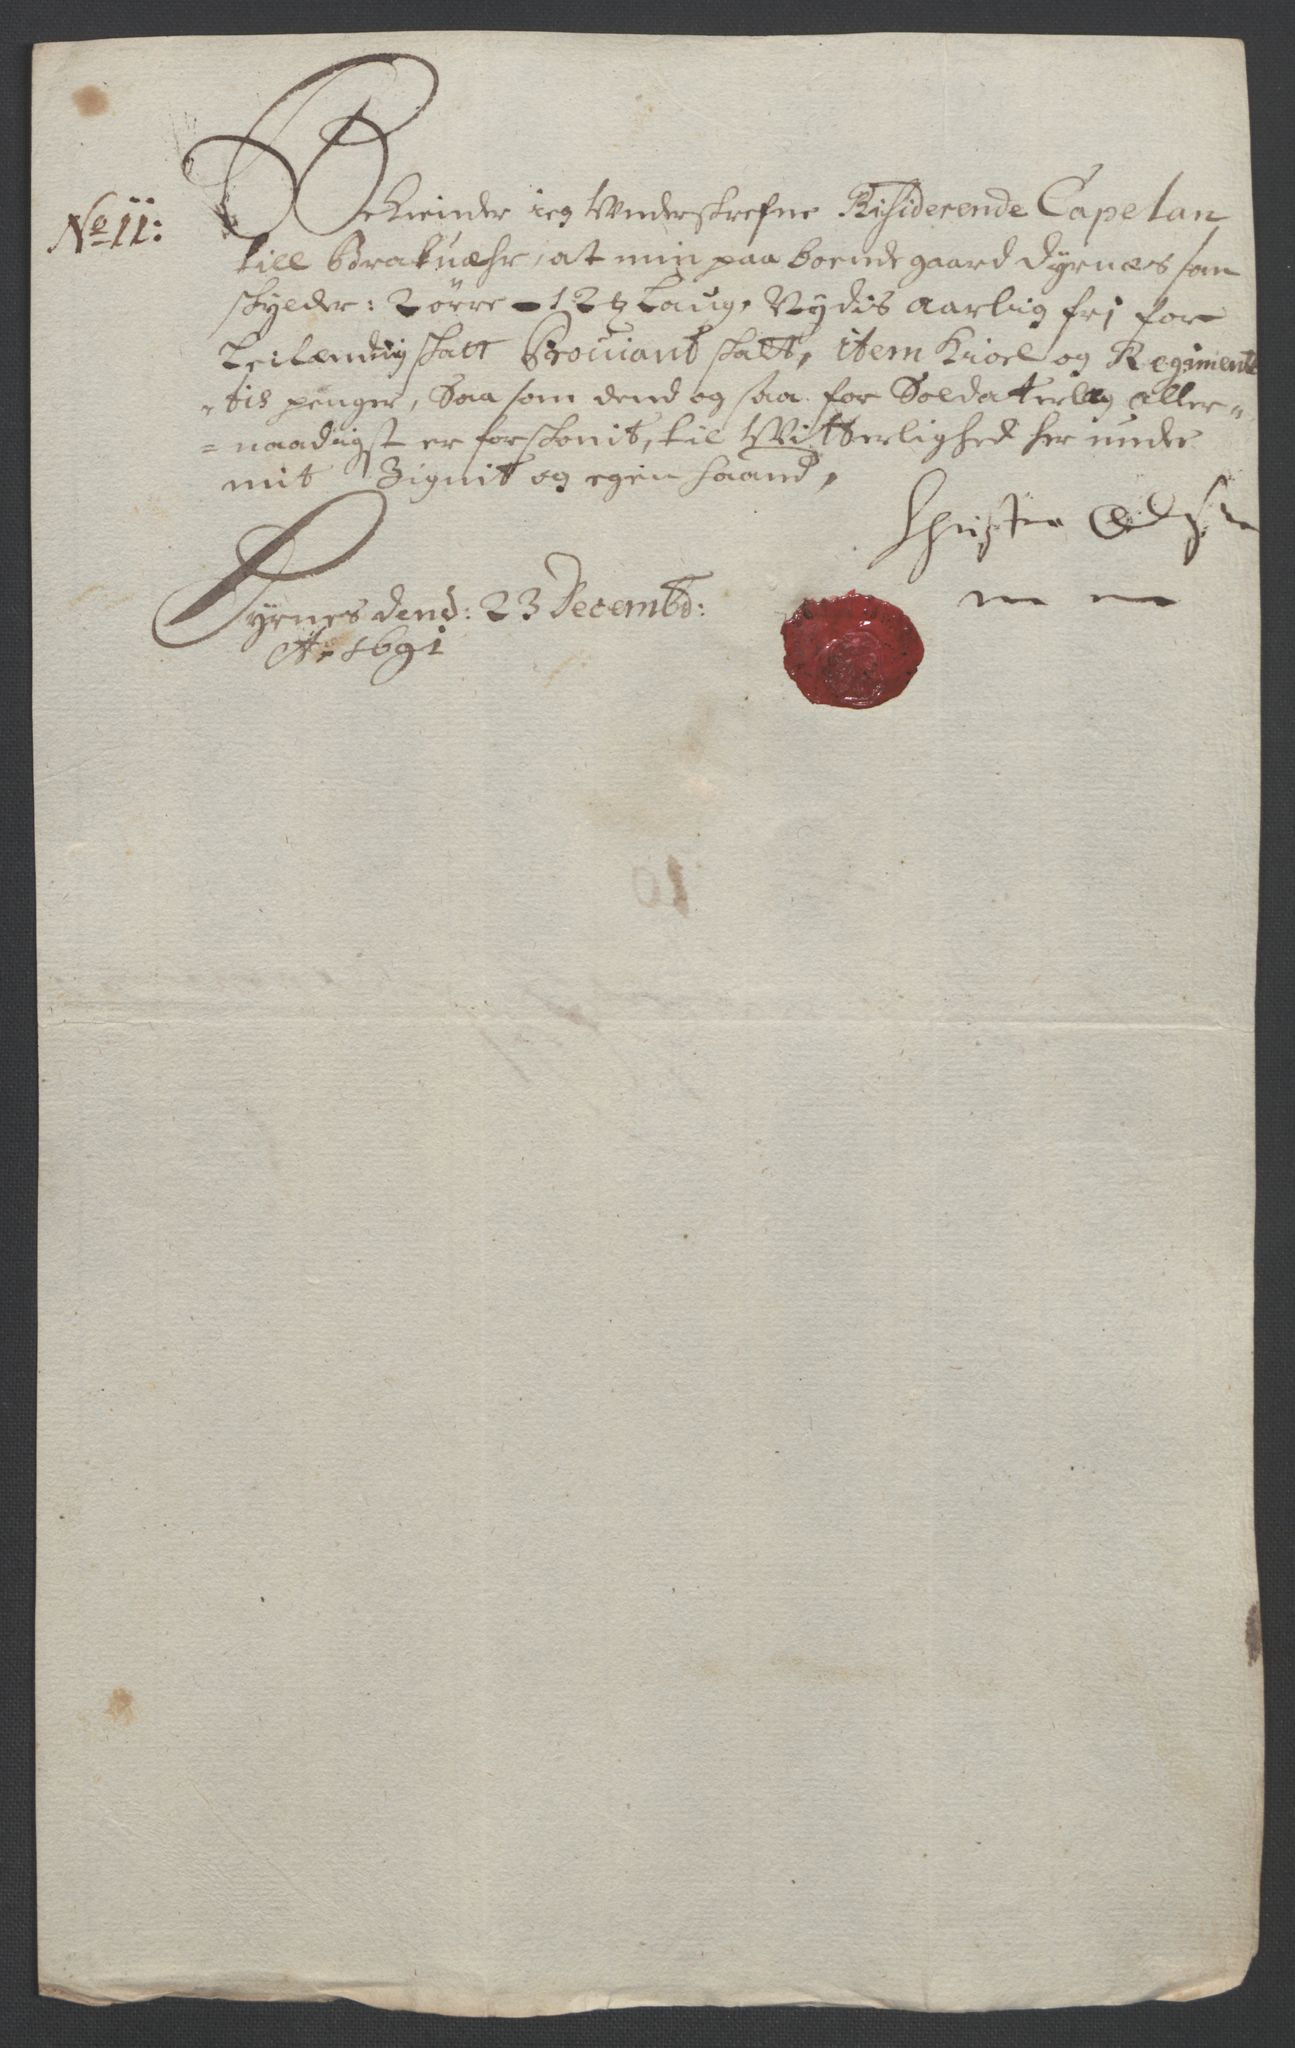 No 11:
Bekiender ieg Underskrefne Risiderende Capelan
till Brakuæhr, at min paa boende gaard Dyrnæs som
skylder: 2 ørre - 12 ꝉ Laug, Nydis aarlig fri for
Leilendig skatt Proviant skatt, item Kioel og Regiment
"tis penger, Saa som dend og saa for Soldatterlæg aller"
=naadigst er forskonit, til Witterlighed her under
mit Zignit og egen haand,
Christen
Dyrnes dend: 23 Decembd:
Ao 1691
10